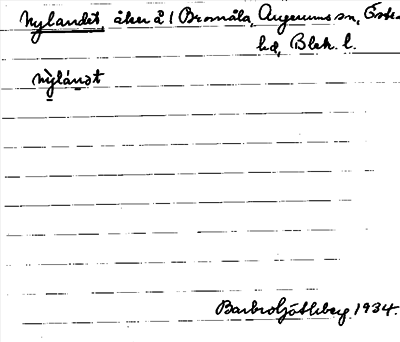 Nylandet, åker å 1 Bromåla, Augerums sn, Östra
hd, Blek. l.
nỳlánət
Barbro Götlberg 1934.